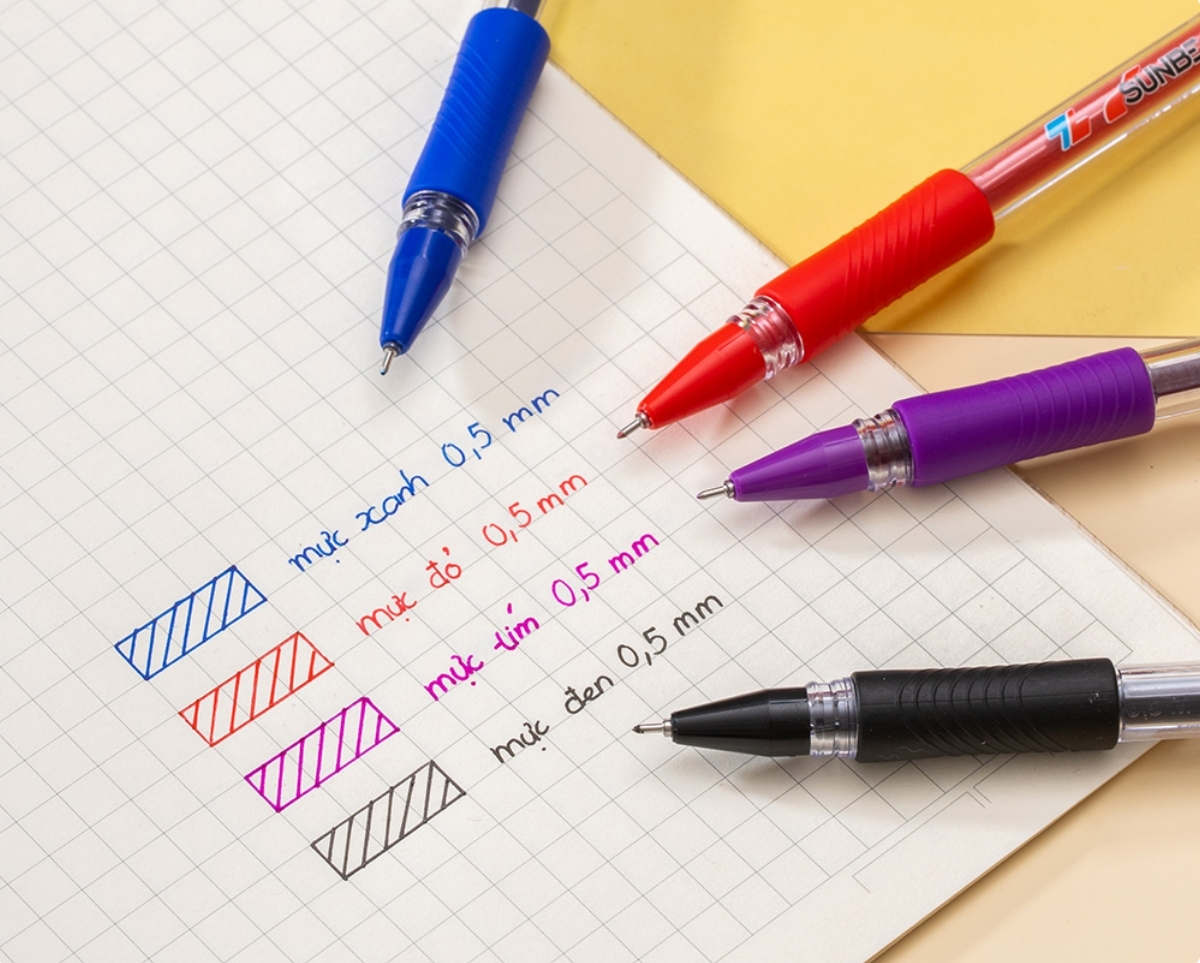 SUNBE
mực xanh 0,5 mm
mực đỏ 0,5 mm
mực tím 0,5 mm
mực đen 0,5 mm